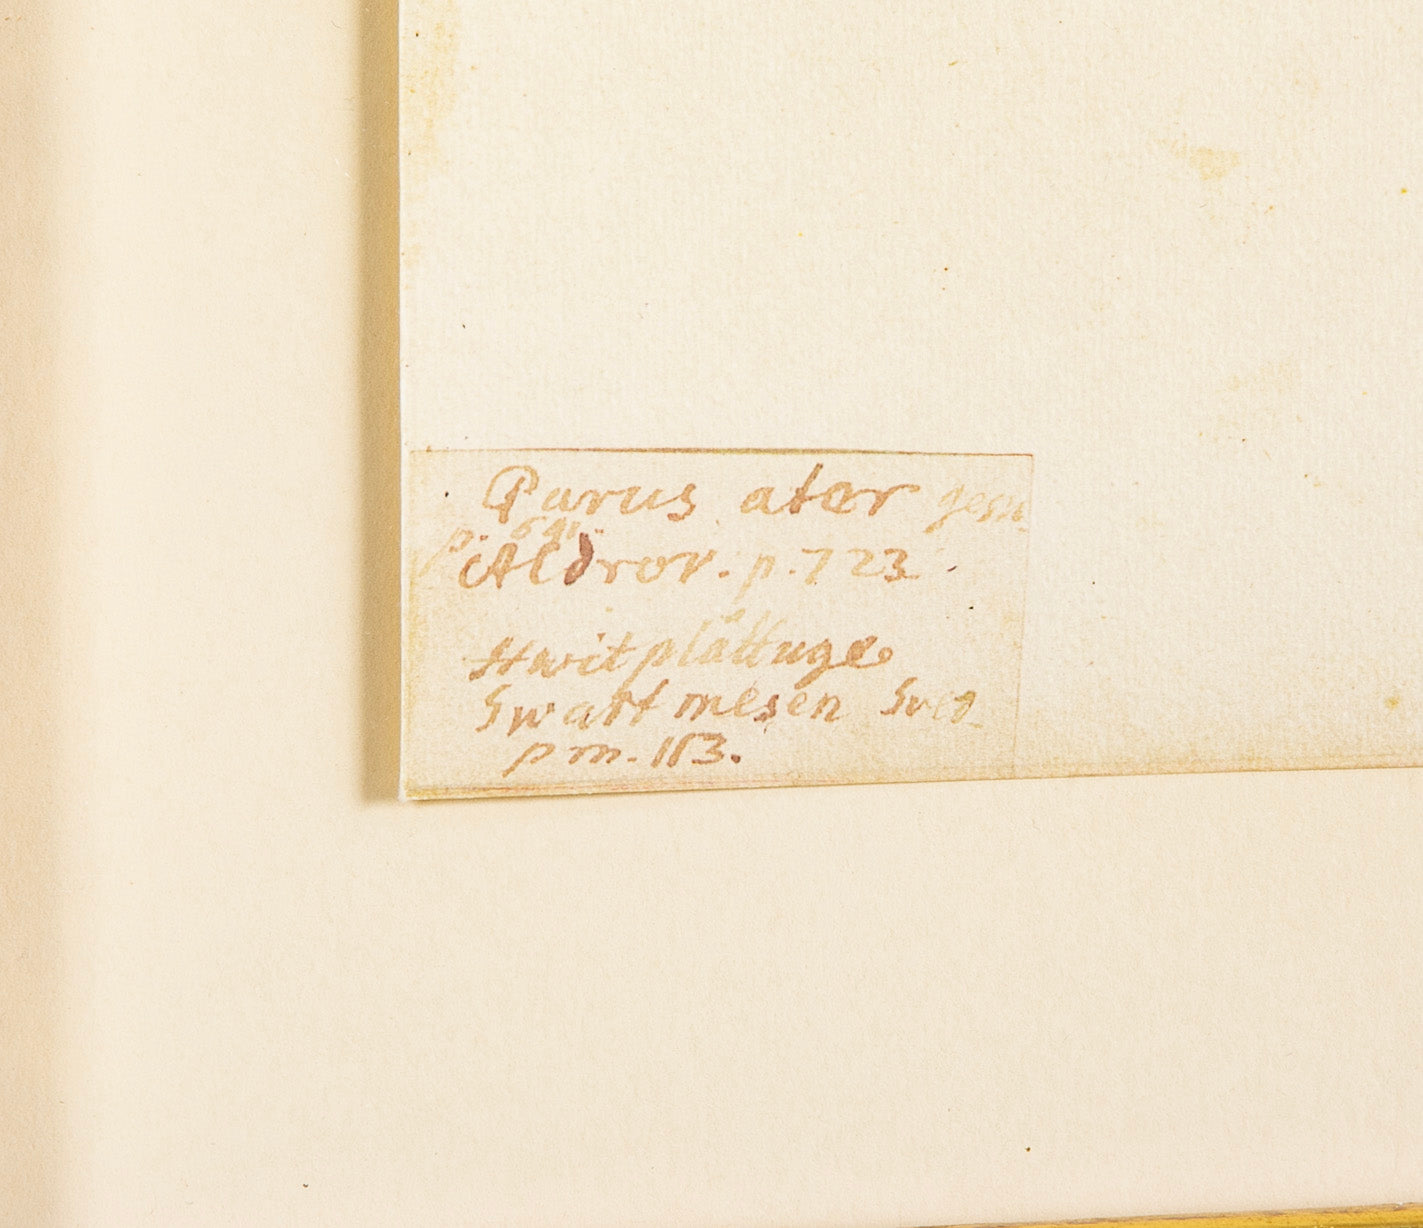 Parus ater gesn.
p. 641.
Aldrov. p. 723.
Hwitplåttuge
Swart mesen Svet
p m. 113.